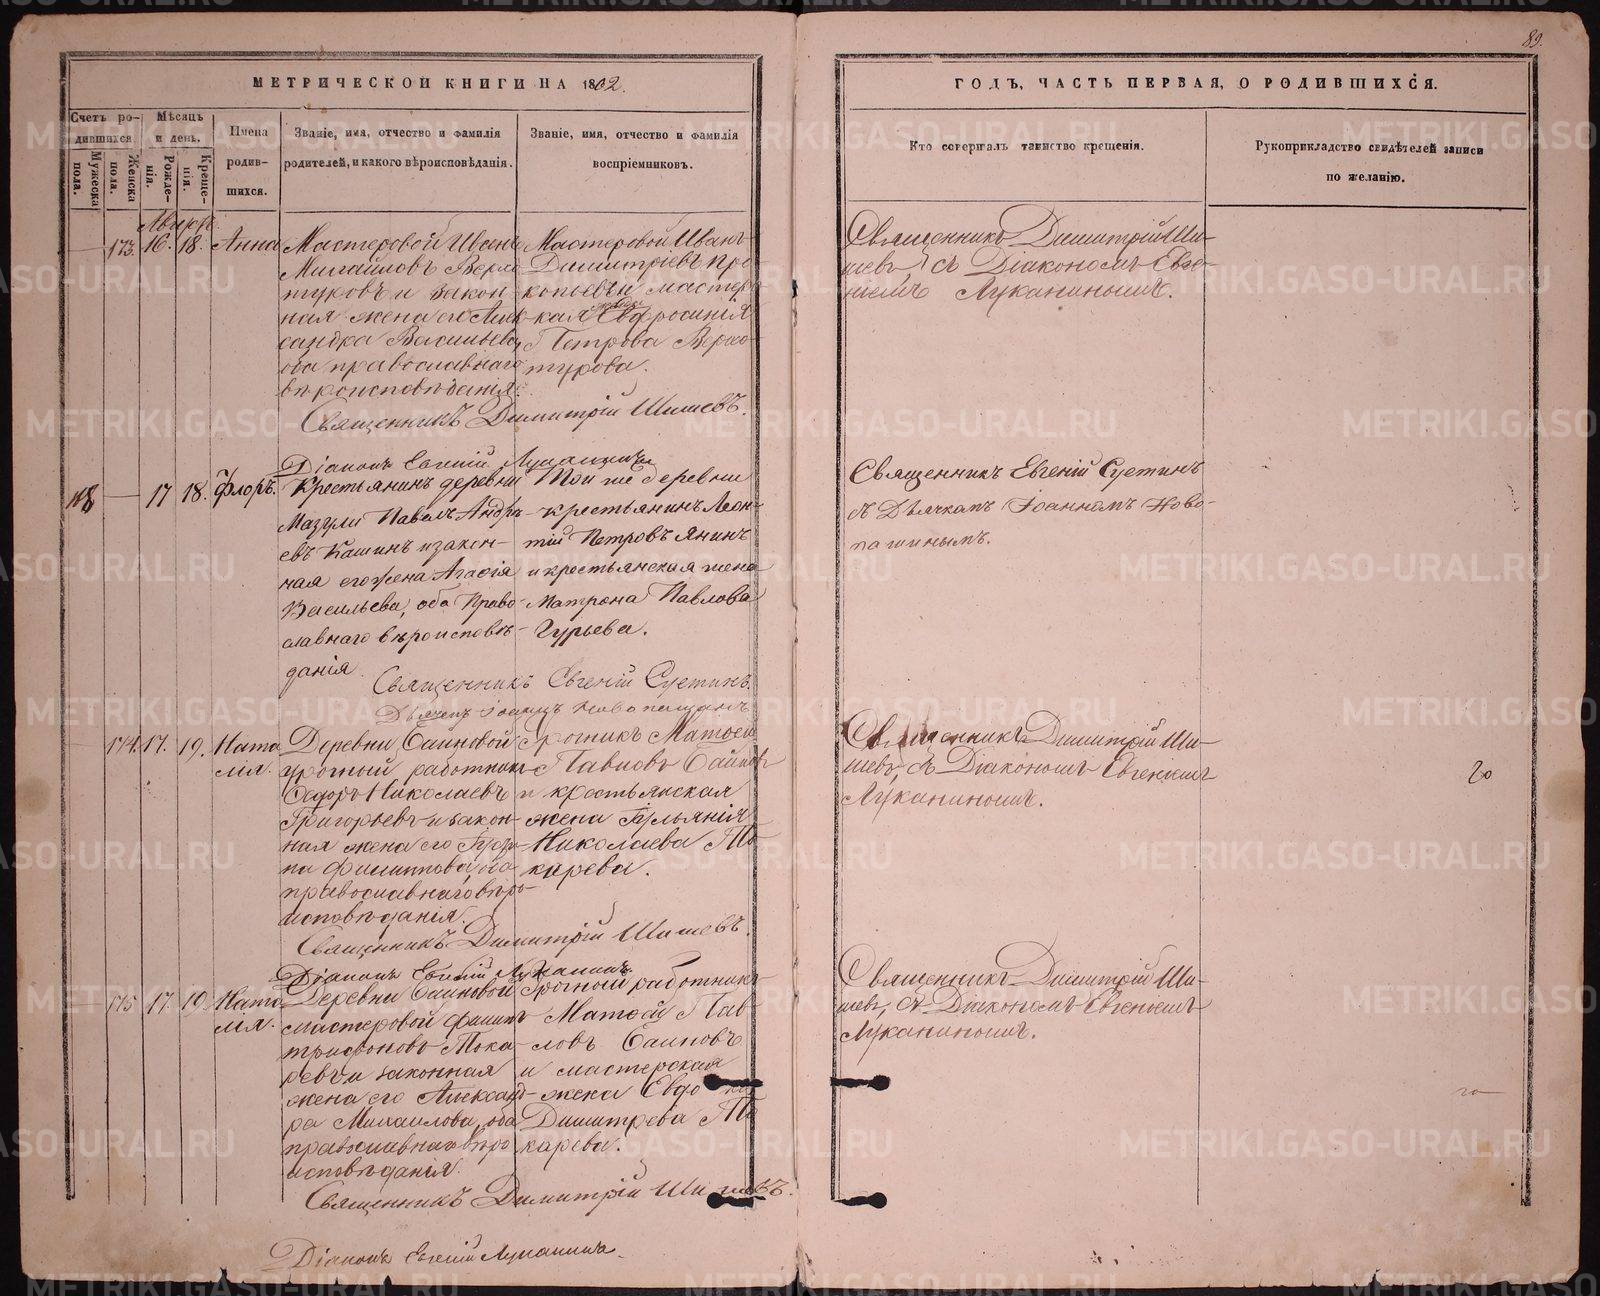 89.
МЕТРИЧЕСКОЙ КНИГИ НА 1862.
ГОДЪ, ЧАСТЬ ПЕРВАЯ, О РОДИВШИХСЯ.
Счетъ родившихся.
Мужеска пола.
Женска пола.
Мѣсяцъ и день.
Рожденія.
Крещенія.
Имена родившихся.
Званіе, имя, отчество и фамилія родителей, и какого вѣроисповѣданія.
Званіе, имя, отчество и фамилія воспріемниковъ.
Кто совершалъ таинство крещенія.
Рукоприкладство свидѣтелей записи по желанію.
173. 16. 18. Анна
Мастеровой Иванъ
Михайловъ Верхо-
туровъ и закон-
ная жена его Алек-
сандра Васильева,
оба православнаго
вѣроисповѣданія.
Мастеровой Иванъ
Димитріевъ Про-
копьевъ и мастер-
ская Евфросинія
Петрова Верхо-
турова.
Священникъ Димитрій Ши-
шевъ съ Діакономъ Евге-
ніемъ Луканинымъ.
Священникъ Димитрій Шишевъ.
Діаконъ Евгеній Луканинъ
17 18. Флоръ.
Крестьянинъ деревни
Мазули Павелъ Андре-
евъ Кашинъ и закон-
ная его жена Агафія
Васильева, оба Право-
славнаго вѣроисповѣ-
данія
Той же деревни
крестьянинъ Леон-
тій Петровъ Янинъ
и крестьянская жена
Матрона Павлова
Гурьева.
Священникъ Евгеній Суетинъ
съ Дьячкомъ Іоанномъ Ново-
пашинымъ.
Священникъ Евгеній Суетинъ.
Дьячекъ Іоаннъ Новопашинъ
174. 17. 19. Ната-
лія.
Деревни Саиновой
урочный работникъ
Ѳедоръ Николаевъ
Григорьевъ и закон-
ная жена его
Филиппова, оба
православнаго вѣро-
исповѣданія.
Урочникъ Матѳей
Павловъ Саиновъ
и крестьянская
жена Іуліанія
Николаева То-
карева.
Священникъ Димитрій Ши-
шевъ, съ Діакономъ Евгеніемъ
Луканинымъ.
Священникъ Димитрій Шишевъ.
Діаконъ Евгеній Луканинъ
175 17. 19. Ната-
лія.
Деревни Саиновой
мастеровой Филипъ
Трифоновъ Тока-
ревъ и законная
жена его Александ-
ра Михаилова, оба
православнаго вѣро-
исповѣданія.
Урочный работникъ
Матѳей Пав-
ловъ Саиновъ
и мастерская
жена Евдокія
Димитріева То-
карева.
Священникъ Димитрій Ши-
шевъ, съ Діакономъ Евгеніемъ
Луканинымъ.
Священникъ Димитрій Шишевъ.
Діаконъ Евгеній Луканинъ.
METRIKI.GASO-URAL.RU